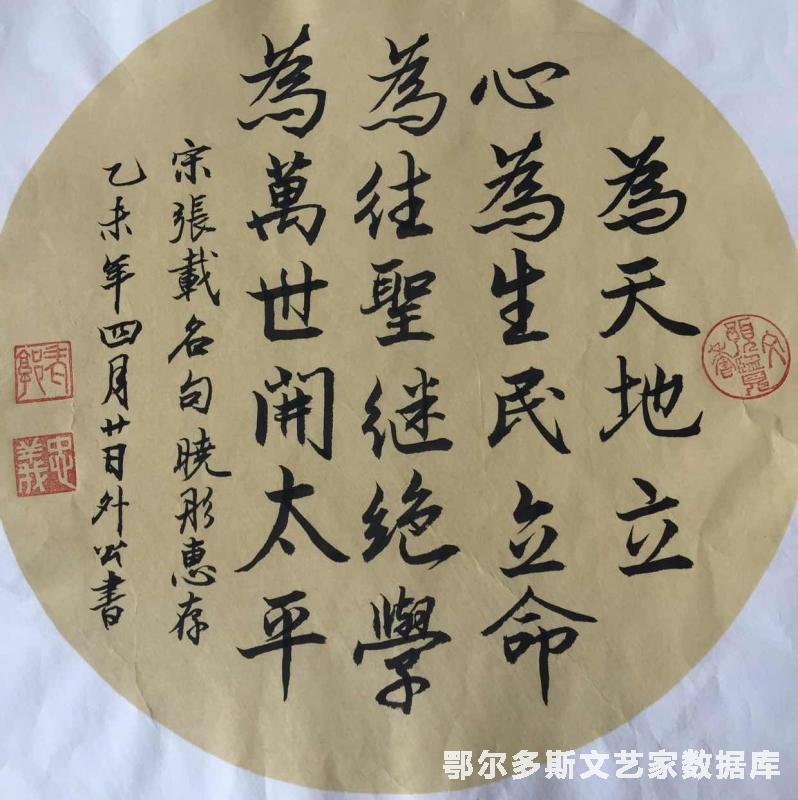 為天地立
心為生民立命
為往聖継绝學
為萬世開太平
宋張載名句曉彤惠存
乙未年四月廿日外公書
忠義
鄂尔多斯文艺家数据库